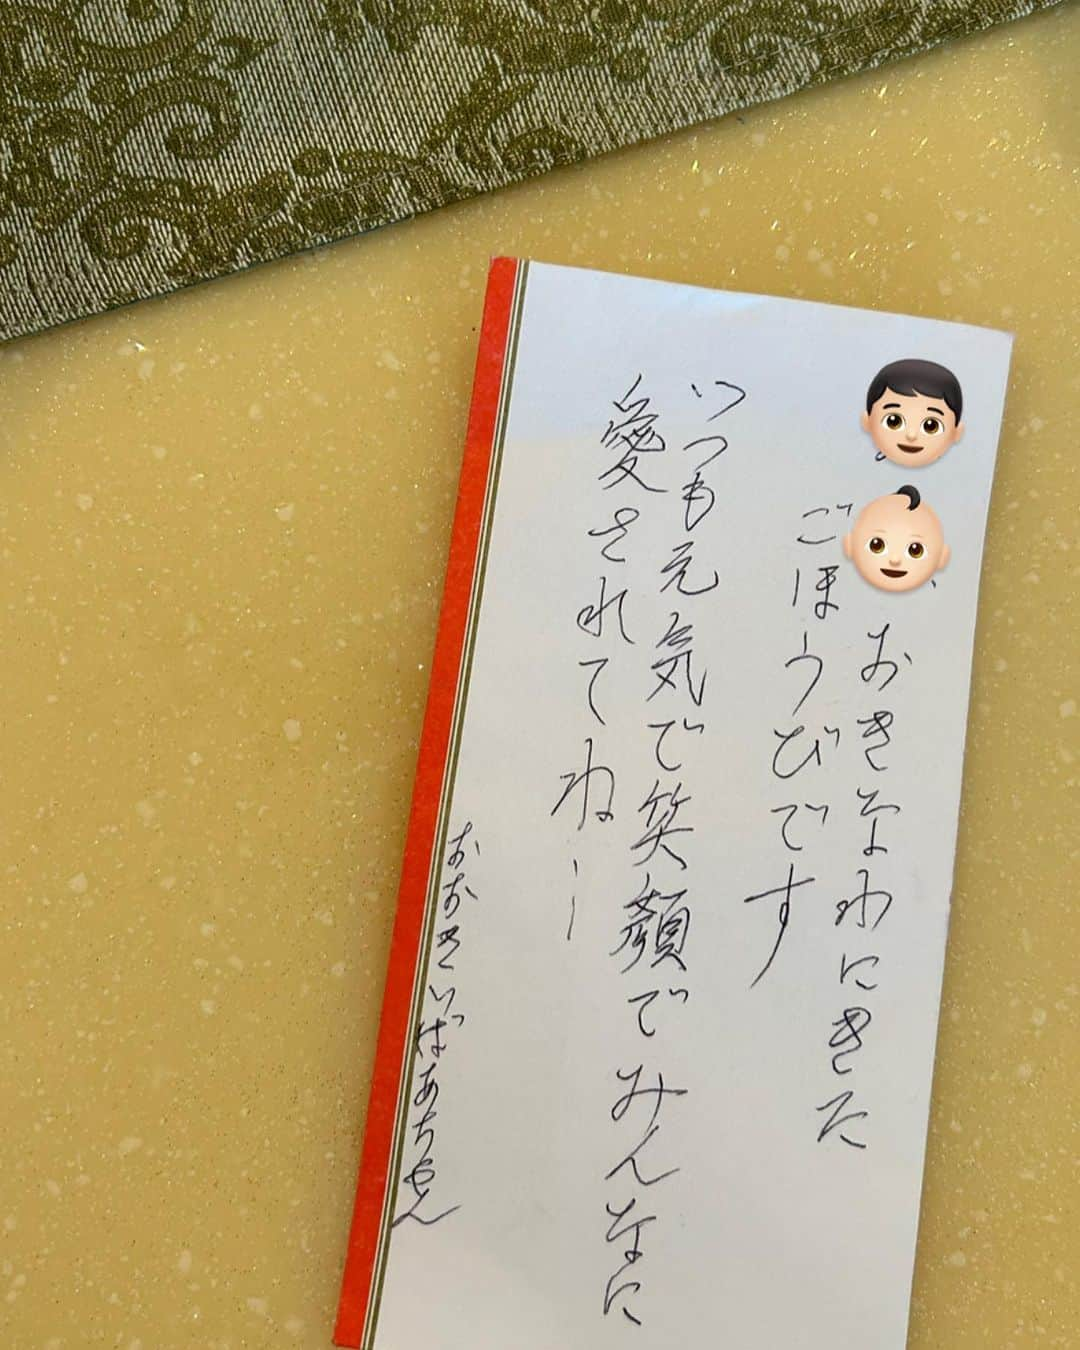 おきなわにきた
ごほうびです
いつも元気で笑顔でみんなに
愛されてねー
おおきいばあちゃん